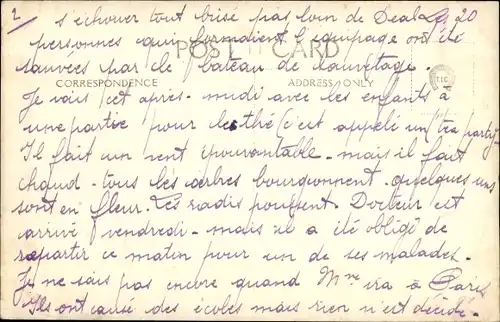 2
s'échouer tout brisé pas loin de Deal. Les 20
personnes qui formaient l'équipage ont été
POST CARD
sauvées par le bateau de sauvetage.
CORRESPONDENCE ADDRESS ONLY
Je vais cet après-midi avec les enfants à
une partie pour le thé (c'est appelé un tea party)
Il fait un vent épouvantable - mais il fait
chaud - tous les arbres bourgonnent - quelques uns
sont en fleur. Les radis poussent. Docteur est
arrivé vendredi - mais il a été obligé de
repartir ce matin pour un de ses malades.
Je ne sais pas encore quand Mme ira à Paris
Ils ont causé des écoles mais rien n'est décidé.